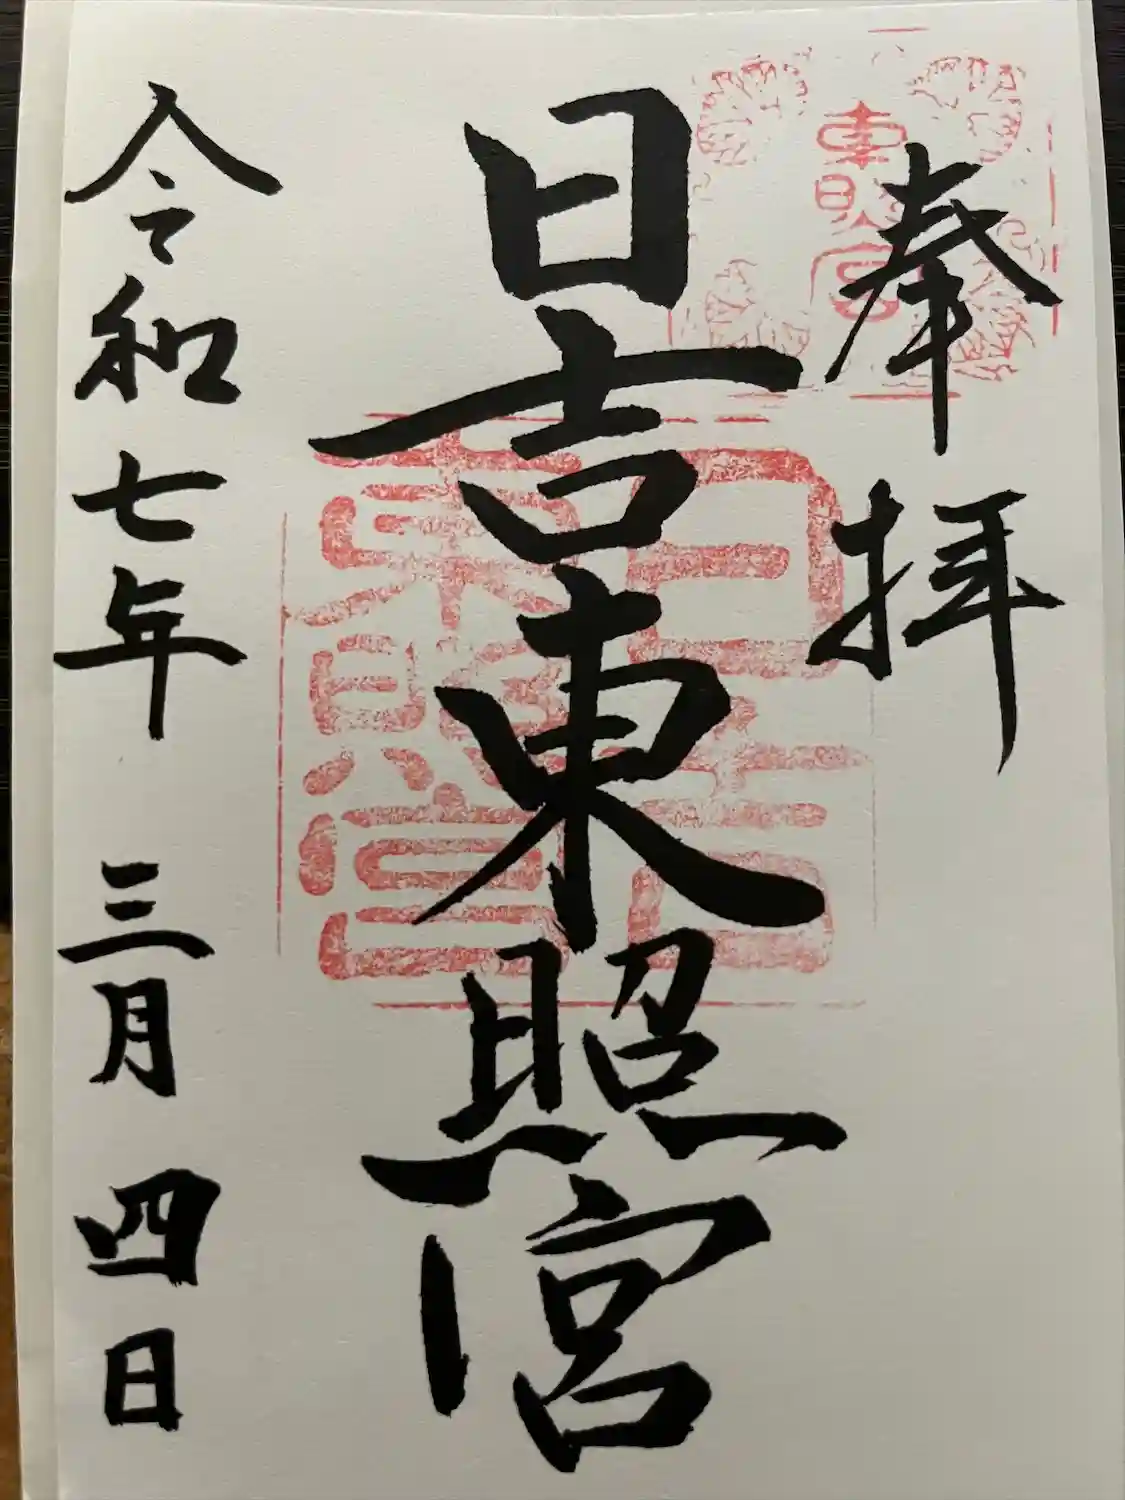 奉拝
東照宮
日吉東照宮
日吉
東照宮
令和七年 三月 四日